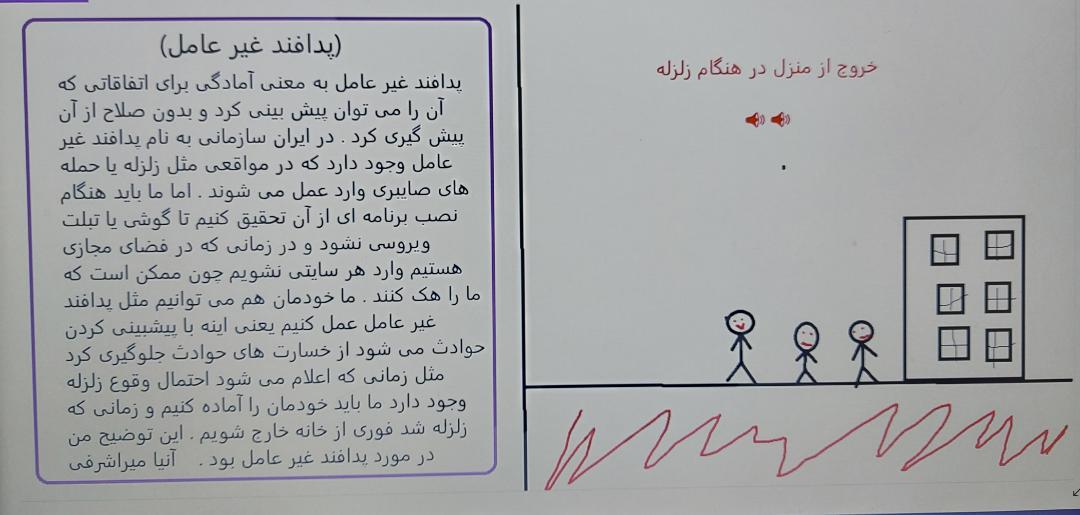 (پدافند غیر عامل)
پدافند غیر عامل به معنی آمادگی برای اتفاقاتی که
آن را می توان پیش بینی کرد و بدون صلاح از آن
پیش گیری کرد . در ایران سازمانی به نام پدافند غیر
عامل وجود دارد که در مواقعی مثل زلزله یا حمله
های صایبری وارد عمل می شوند . اما ما باید هنگام
نصب برنامه ای از آن تحقیق کنیم تا گوشی یا تبلت
ویروسی نشود و در زمانی که در فضای مجازی
هستیم وارد هر سایتی نشویم چون ممکن است که
ما را هک کنند . ما خودمان هم می توانیم مثل پدافند
غیر عامل عمل کنیم یعنی اینه با پیشبینی کردن
حوادث می شود از خسارت های حوادث جلوگیری کرد
مثل زمانی که اعلام می شود احتمال وقوع زلزله
وجود دارد ما باید خودمان را آماده کنیم و زمانی که
زلزله شد فوری از خانه خارج شویم . این توضیح من
در مورد پدافند غیر عامل بود . آنیا میراشرفی
خروج از منزل در هنگام زلزله